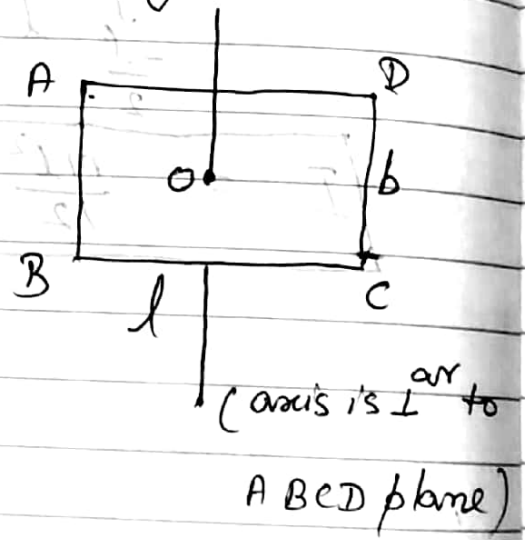 A D
O b
B l C
(axis is ⊥ar to
ABCD plane)